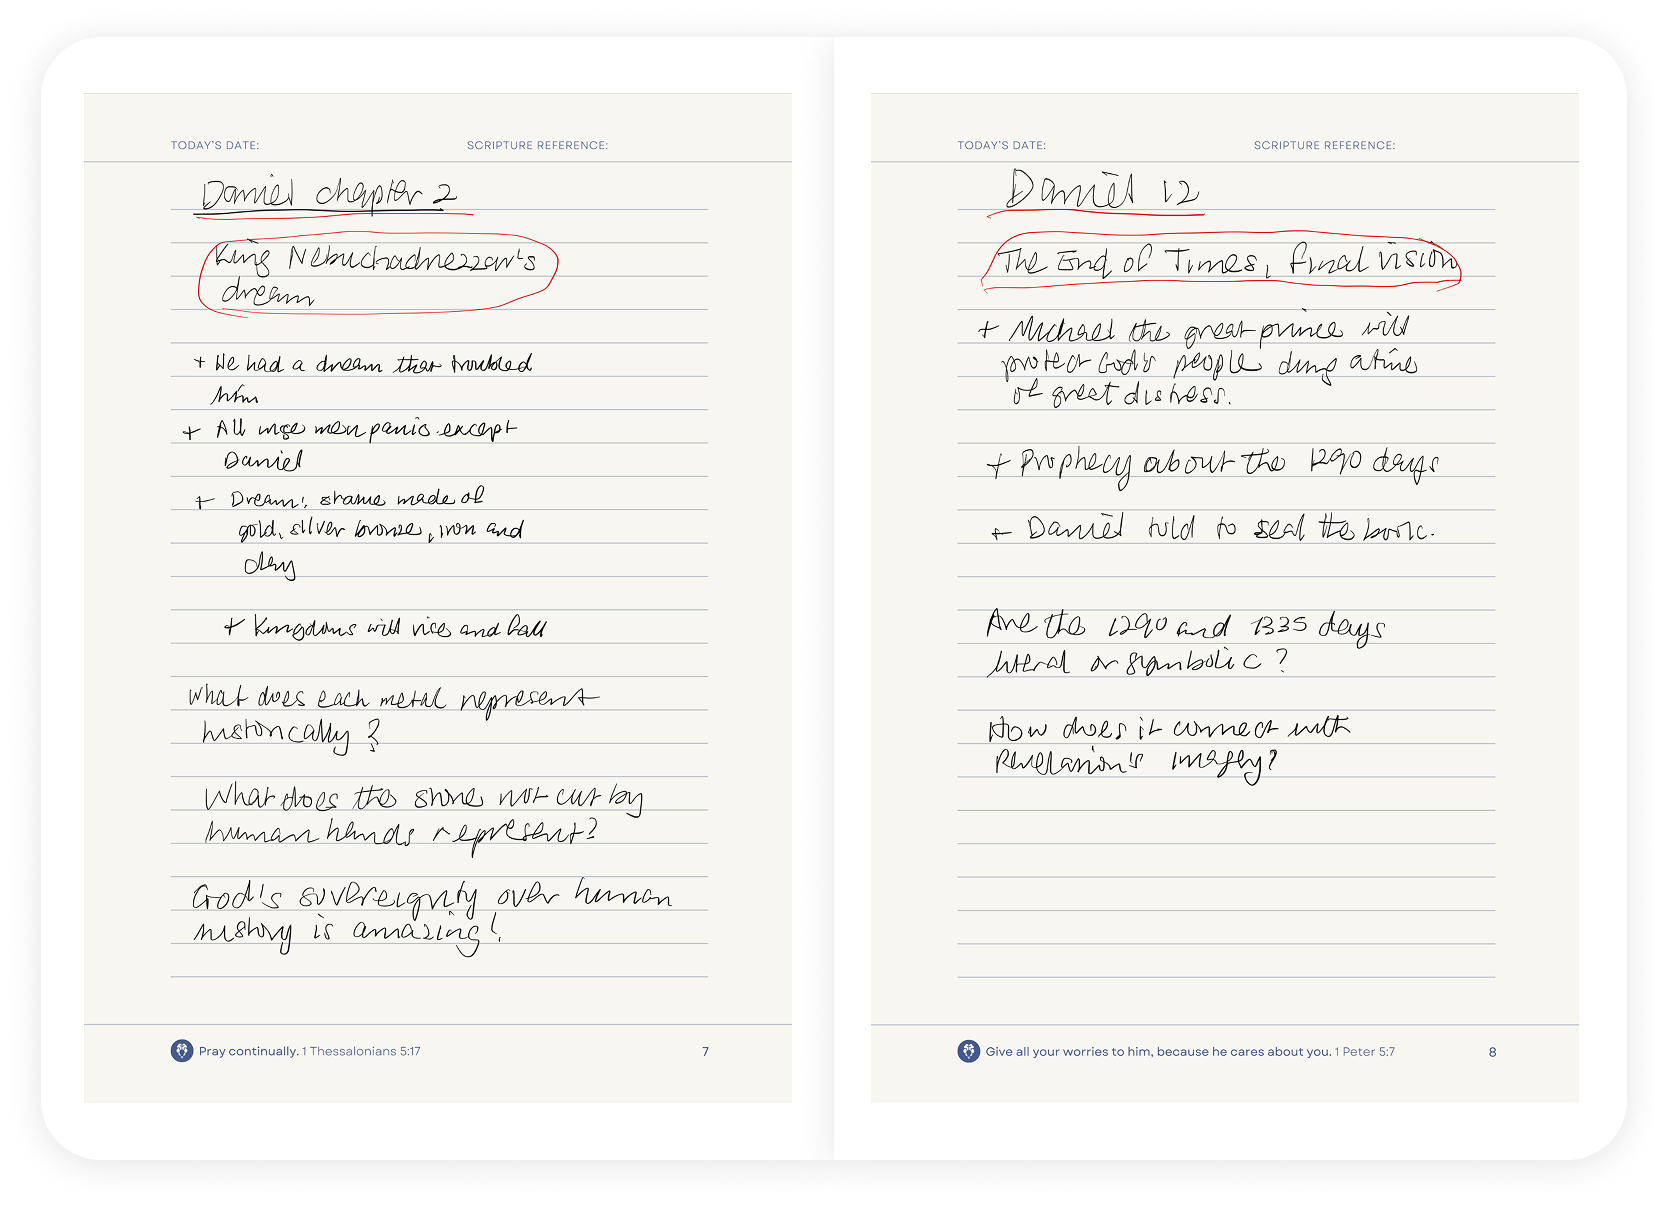 TODAY'S DATE: SCRIPTURE REFERENCE:
Daniel chapter 2
King Nebuchadnezzar's
dream
+ He had a dream that troubled
him
+ All wise men panic except
Daniel
+ Dream: statue made of
gold, silver bronze, iron and
clay
+ Kingdoms will rise and fall
What does each metal represent
historically?
What does the stone not cut by
human hands represent?
God's sovereignty over human
history is amazing!
Pray continually. 1 Thessalonians 5:17 7
TODAY'S DATE: SCRIPTURE REFERENCE:
Daniel 12
The End of Times, final vision
+ Michael the great prince will
protect God's people during a time
of great distress.
+ Prophecy about the 1290 days
+ Daniel told to seal the book.
Are the 1290 and 1335 days
literal or symbolic?
How does it connect with
Revelation's imagery?
Give all your worries to him, because he cares about you. 1 Peter 5:7 8